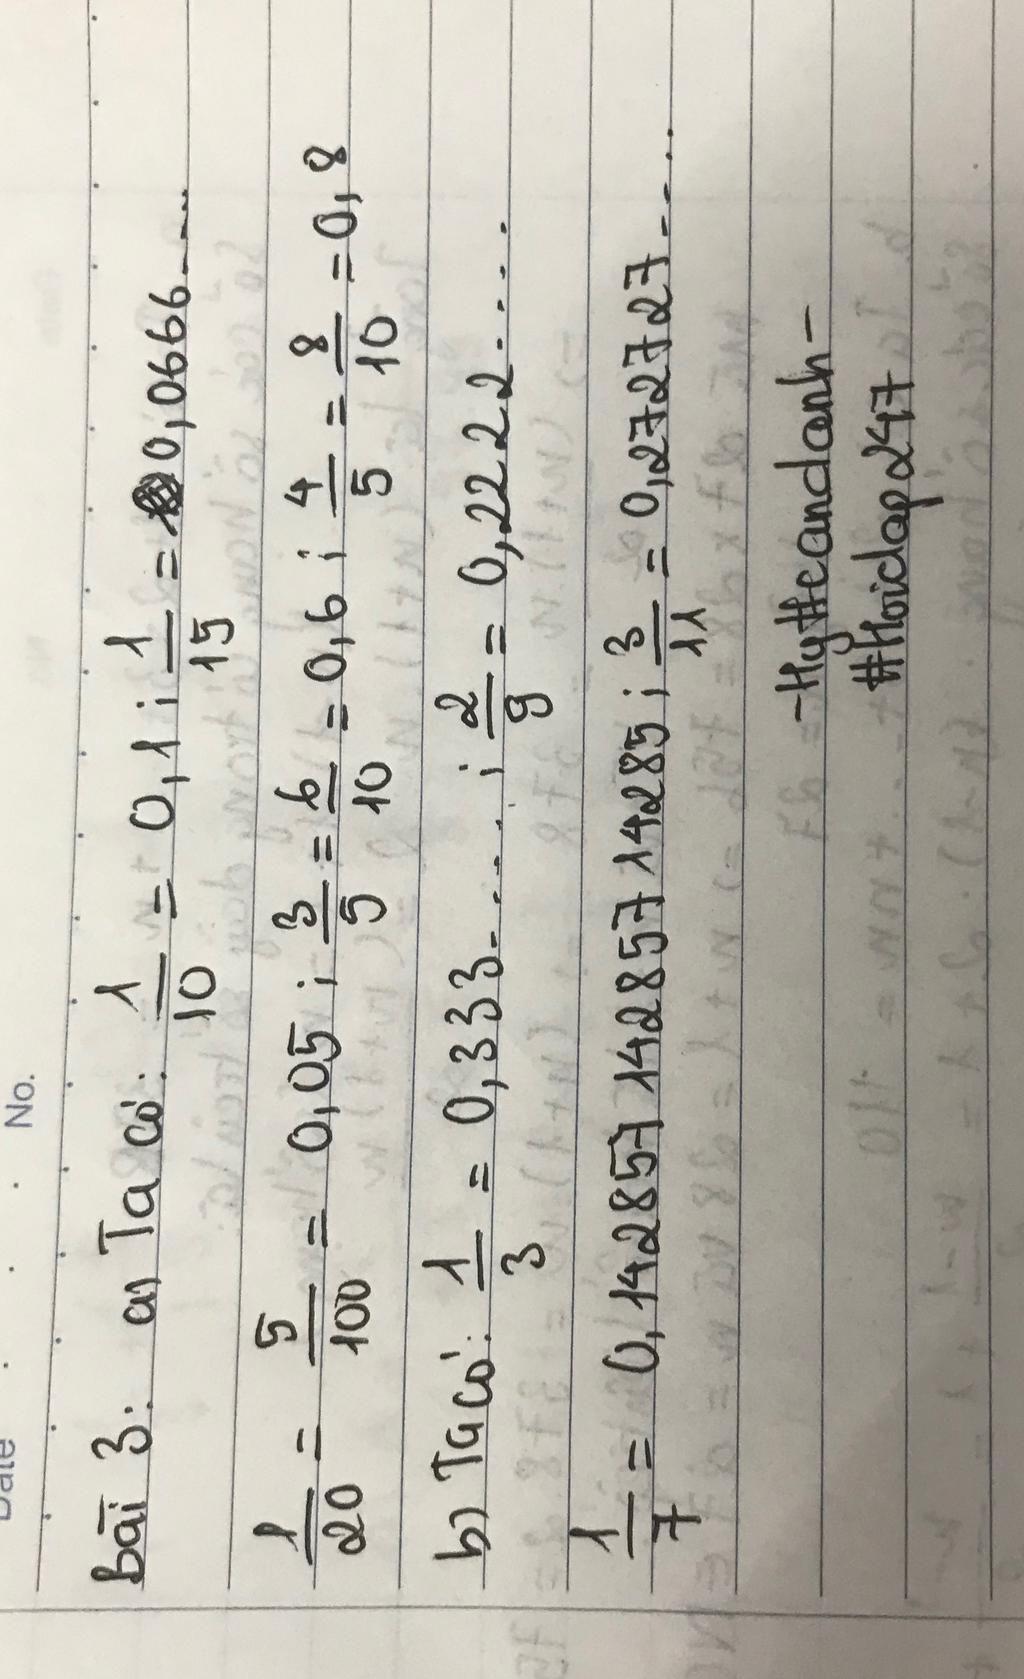 Date No.
Bài 3: a) Ta có: 1/10 = 0,1 ; 1/15 = 0,0666....
1/20 = 5/100 = 0,05 ; 3/5 = 6/10 = 0,6 ; 4/5 = 8/10 = 0,8
b) Ta có: 1/3 = 0,333..... ; 2/9 = 0,2222.....
1/7 = 0,14285714285714285714285 ; 3/11 = 0,272727....
-HyHeandanh-
#Hoidap247